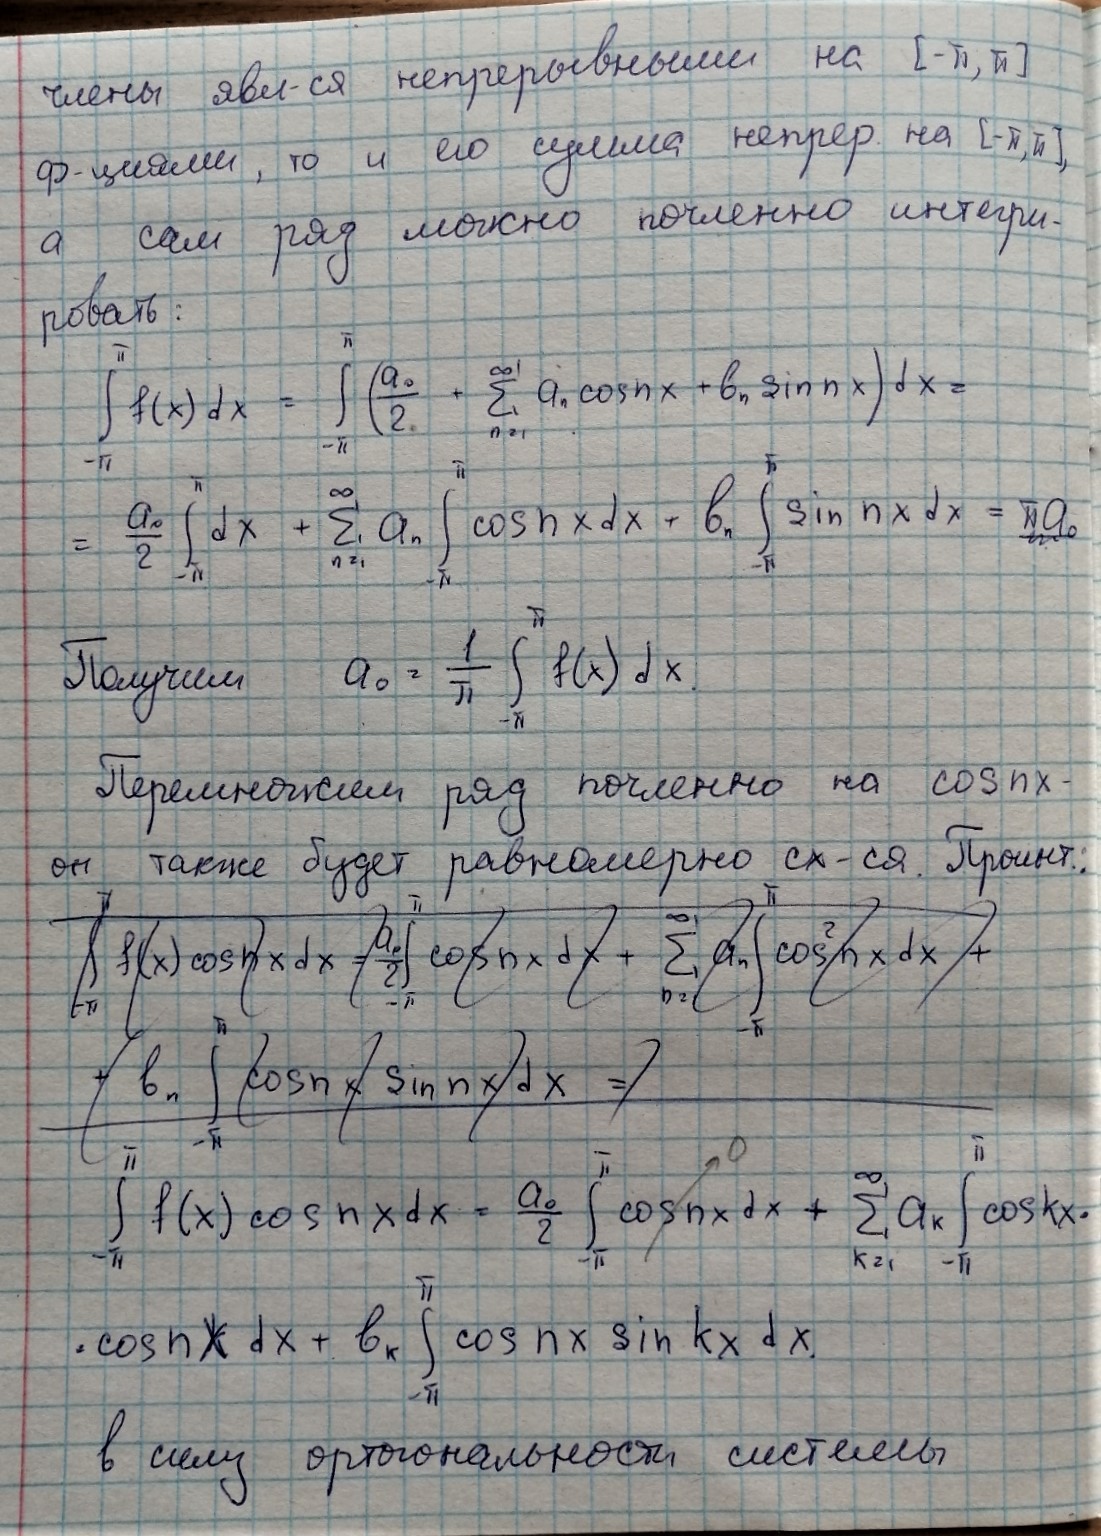 члены явл-ся непрерывными на [-π, π]
ф-циями, то и его сумма непрер. на [-π, π],
а сам ряд можно почленно интегри-
ровать:
∫_{-π}^{π} f(x) dx = ∫_{-π}^{π} (a₀/2 + ∑_{n=1}^{∞} aₙ cos nx + bₙ sin nx) dx =
= a₀/2 ∫_{-π}^{π} dx + ∑_{n=1}^{∞} aₙ ∫_{-π}^{π} cos nx dx + bₙ ∫_{-π}^{π} sin nx dx = πa₀
Получим a₀ = 1/π ∫_{-π}^{π} f(x) dx.
Перемножим ряд почленно на cos nx -
он также будет равномерно сх-ся. Проинт.:
∫_{-π}^{π} f(x) cos nx dx = a₀/2 ∫_{-π}^{π} cos nx dx + ∑_{n=1}^{∞} aₙ ∫_{-π}^{π} cos² nx dx +
+ bₙ ∫_{-π}^{π} cos nx sin nx dx =
∫_{-π}^{π} f(x) cos nx dx = a₀/2 ∫_{-π}^{π} cos nx dx → 0 + ∑_{k=1}^{∞} aₖ ∫_{-π}^{π} cos kx ·
· cos nx dx + bₖ ∫_{-π}^{π} cos nx sin kx dx.
в силу ортогональности системы